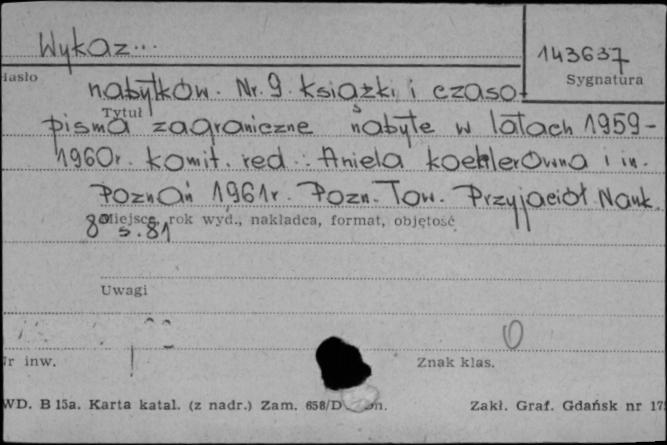 Wykaz...
143637
Hasło
Sygnatura
nabytków. Nr. 9. Książki i czaso-
Tytuł
pisma zagraniczne nabyte w latach 1959-
1960r. Komit. red.: Aniela Koehlerówna i in.
Poznań 1961r. Pozn. Tow. Przyjaciół Nauk.
Miejsce, rok wyd., nakładca, format, objętość
8° s. 81
Uwagi
0
Nr inw.
Znak klas.
WD. B 15a. Karta katal. (z nadr.) Zam. 658/D
Zakł. Graf. Gdańsk nr 17